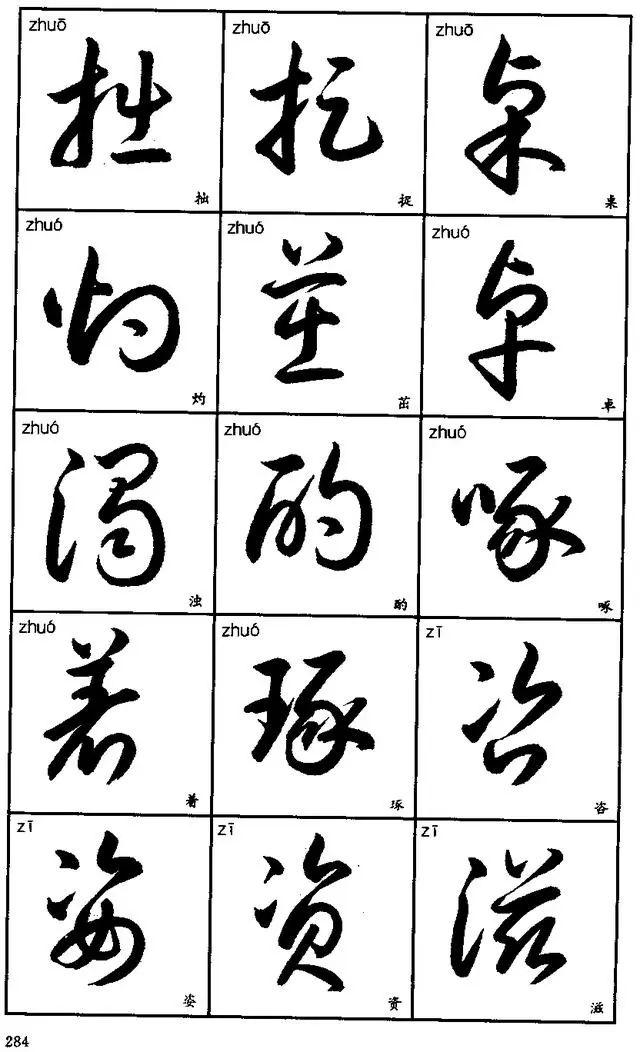 zhuō zhuō zhuō
拙 捉 桌
拙 捉 桌
zhuó zhuó zhuó
灼 茁 卓
灼 茁 卓
zhuó zhuó zhuó
浊 酌 啄
浊 酌 啄
zhuó zhuó zī
着 琢 咨
着 琢 咨
zī zī zī
姿 资 滋
姿 资 滋
284